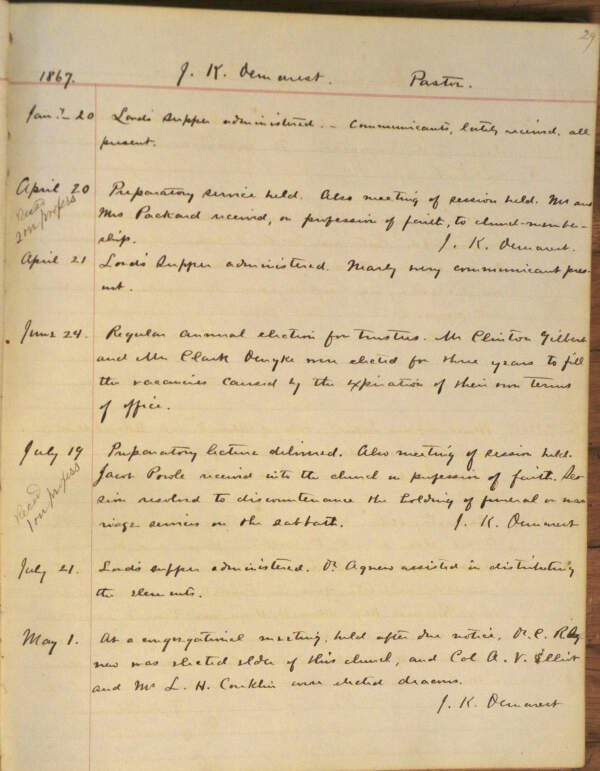 29
1867. J. K. Demarest. Pastor.
Jany 20 Lord's Supper administered. – Communicants, lately received, all
present.
April 20 Preparatory service held. Also meeting of session held. Mr and
Rec'd
2 on profess
Mrs Packard received, on profession of faith, to church-member-
ship. J. K. Demarest.
April 21 Lord's Supper administered. Nearly every communicant pres-
ent.
June 24. Regular annual election for trustees. Mr Clinton Gilbert
and Mr Clark were elected for three years to fill
the vacancies caused by the expiration of their own terms
of office.
July 19 Preparatory lecture delivered. Also meeting of session held.
Rec'd
1 on profess
Jacob received into the church on profession of faith. Ses-
sion resolved to discountenance the holding of funeral or mar-
riage services on the sabbath. J. K. Demarest
July 21. Lord's supper administered. Dr Agnew assisted in distributing
the elements.
May 1. At a congregational meeting, held after due notice, Dr. C. R. Ag-
new was elected elder of this church, and Col A. V. Elliot
and Mr L. H. Conklin were elected deacons.
J. K. Demarest